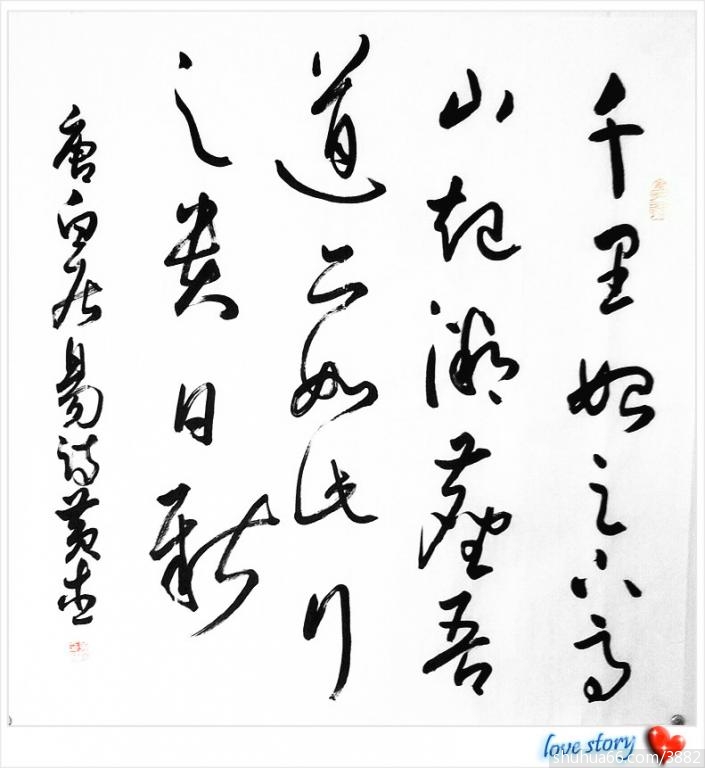 千里始足下高
山起微塵吾
道亦如此行
之貴日新
唐白居易詩黄
love story
shuhua66.com/3882